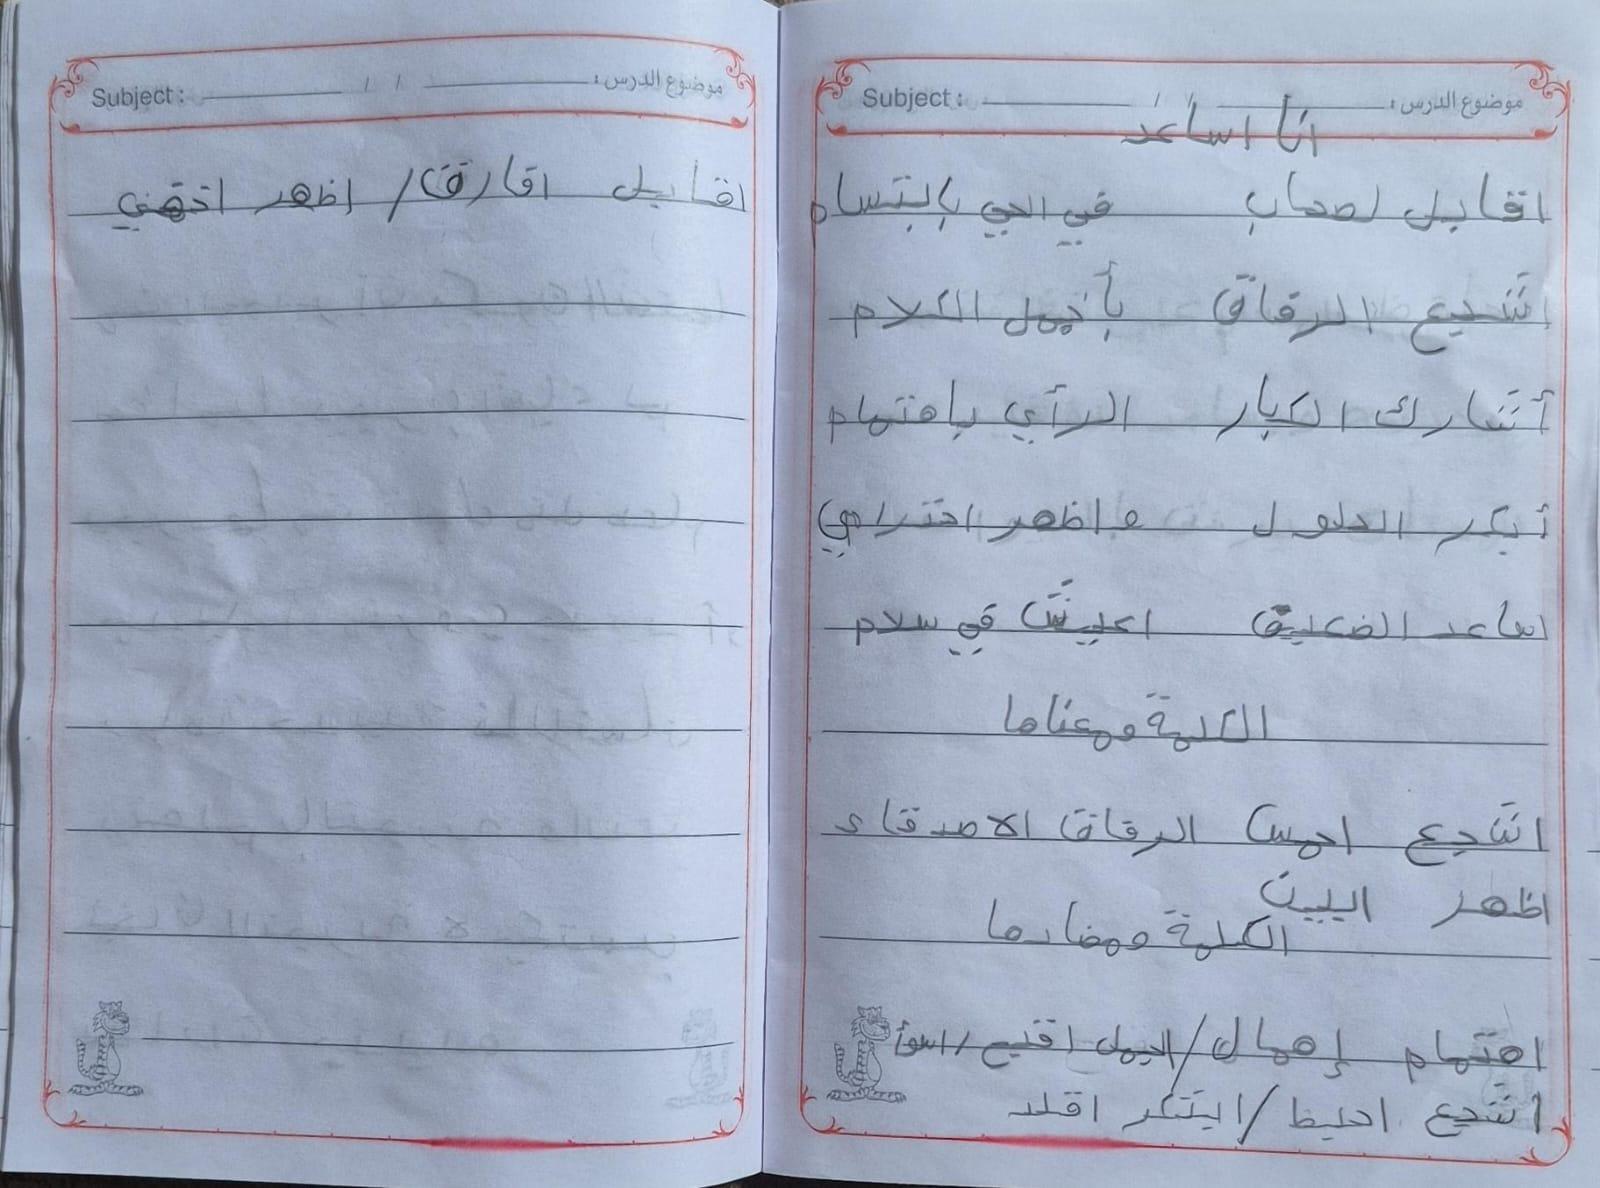 موضوع الدرس: / / Subject:
انا اساعد
اقابل لصحاب في الحي بابتسام
اشجع الرفاق بأجمل الكلام
أشارك الكبار الرأي باهتمام
أبكر الحلول و اظهر احترامي
اساعد الضعيف اعيش في سلام
الكلمة ومعناها
اشجع احمس الرفاق الاصدقاء
اظهر ابين
الكلمة ومضادها
اهتمام إهمال / اجمل اقبح / اسوأ
اشجع احبط / ابتكر اقلد
موضوع الدرس: / / Subject:
اقابل افارق / اظهر اخفي